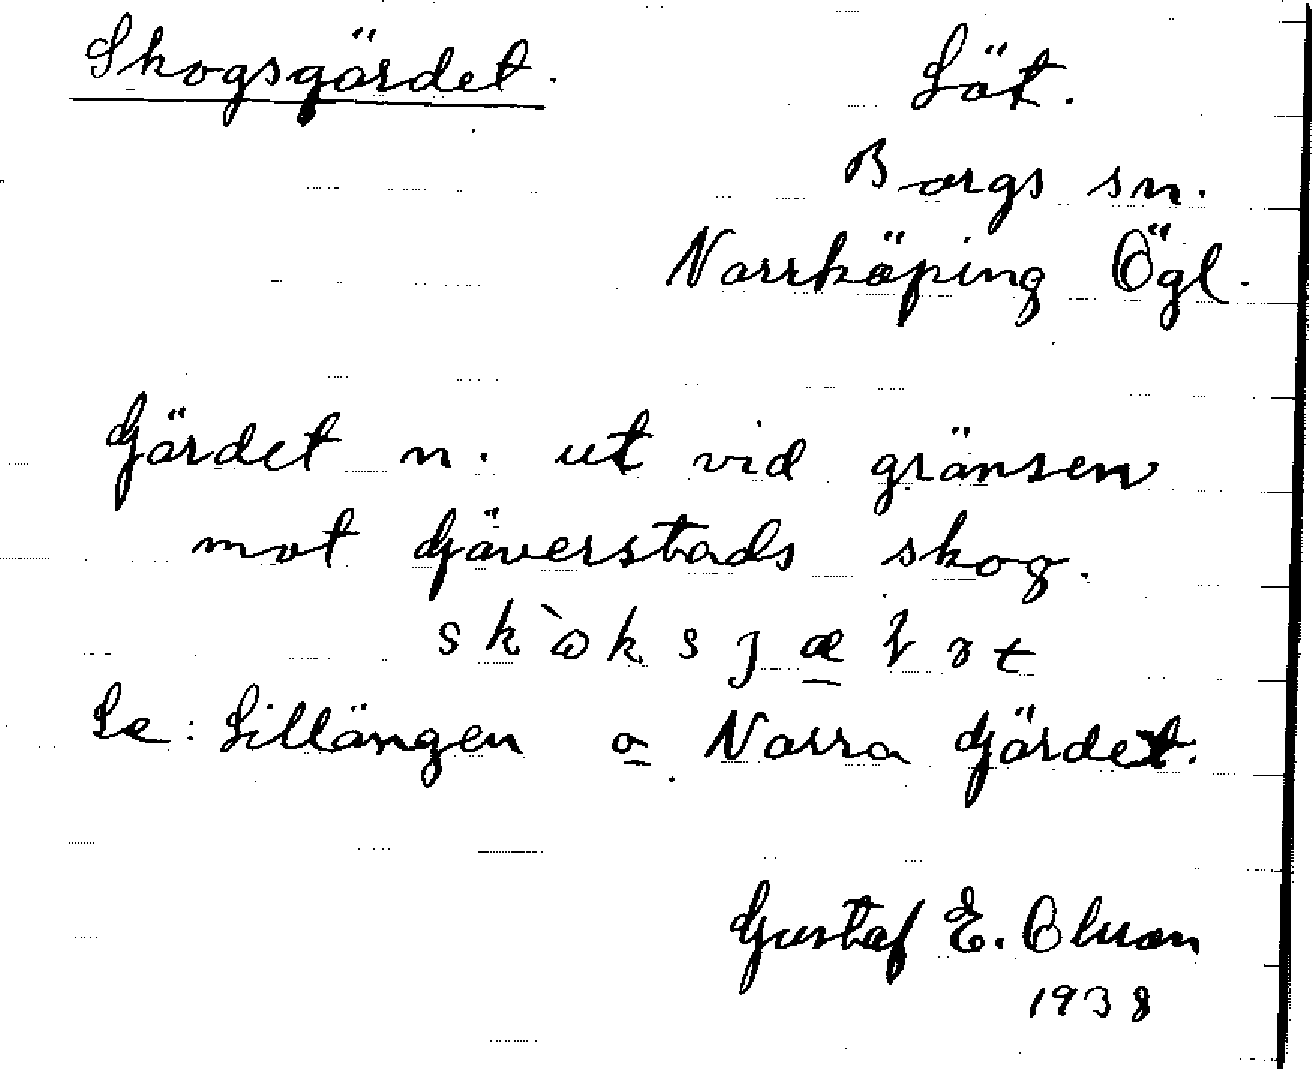 Skogsgärdet.
Löt.
Borgs sn.
Norrköping Ögl.
Gärdet n. ut vid gränsen
mot Gäverstads skog.
Se: Lillängen o Norra Gärdet.
Gustaf E. Olsson
1938